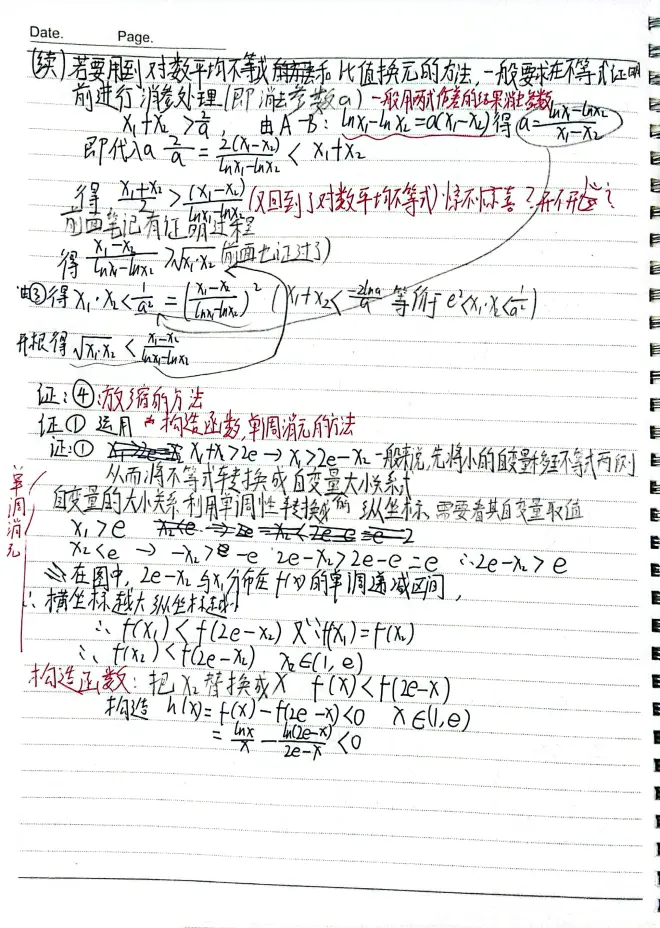 Date. Page.
(续)若要用到对数平均不等式和比值换元的方法,一般要求在不等式证明
前进行消参处理(即消去参数a)一般用两式作差的结果消去参数
x₁+x₂>2/a, 由A-B: lnx₁-lnx₂=a(x₁-x₂)得a=(lnx₁-lnx₂)/(x₁-x₂)
即代入a 2/a = 2(x₁-x₂)/(lnx₁-lnx₂) < x₁+x₂
得 (x₁+x₂)/2 > (x₁-x₂)/(lnx₁-lnx₂) (又回到了对数平均不等式)惊不惊喜?开不开心?
前面笔记有证明过程
得 (x₁-x₂)/(lnx₁-lnx₂) > √x₁·x₂ (前面也证过了)
由③得 x₁·x₂<1/a² = ((x₁-x₂)/(lnx₁-lnx₂))² (x₁+x₂<-2lna/a 等价于 e²<x₁·x₂<1/a²)
开根得 √x₁·x₂ < (x₁-x₂)/(lnx₁-lnx₂)
证:④:放缩的方法
证① 运用 构造函数,单调消元的方法
证:① x₁+x₂>2e → x₁>2e-x₂ 一般来说,先将小的自变量移至不等式两侧
从而将不等式转换成自变量大小关系式
单调消元
自变量的大小关系利用单调性转换成的纵坐标、需要看其自变量取值
x₁>e
x₂<e → -x₂>-e 2e-x₂>2e-e=e ∴2e-x₂>e
在图中,2e-x₂与x₁分布在f(x)的单调递减区间,
∴横坐标越大纵坐标越小
∴ f(x₁)<f(2e-x₂) 又∵f(x₁)=f(x₂)
∴ f(x₂)<f(2e-x₂) x₂∈(1,e)
构造函数:把x₂替换成X f(x)<f(2e-x)
构造 h(x)=f(x)-f(2e-x)<0 x∈(1,e)
= lnx/x - ln(2e-x)/(2e-x) <0